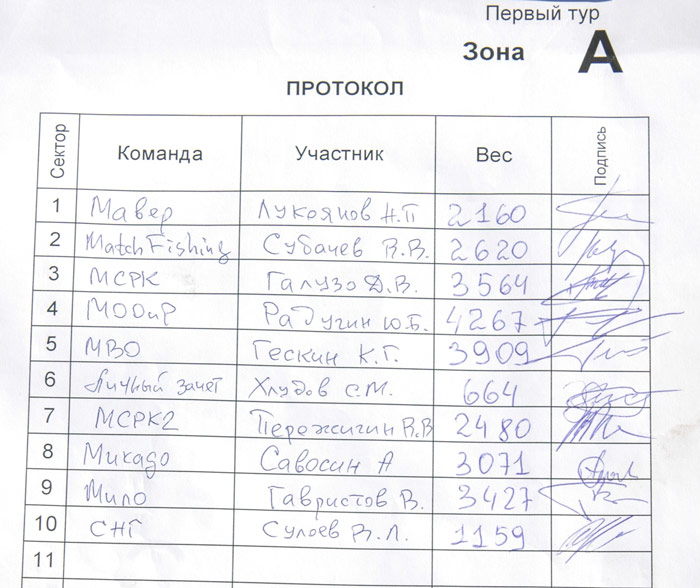 Первый тур
Зона А
ПРОТОКОЛ
Сектор Команда Участник Вес Подпись
1 Мавер Лукоянов Н.П 2160
2 MatchFishing Субачев В.В. 2620
3 МСРК Галузо Д.В. 3564
4 МООиР Радугин Ю.Б. 4267
5 МВО Гескин К.Г. 3909
6 Личный зачет Хлудов С.М. 664
7 МСРК2 Пережигин В.В 2480
8 Микадо Савосин А 3071
9 Мило Гавристов В. 3427
10 СНГ Сулоев В.Л. 1159
11